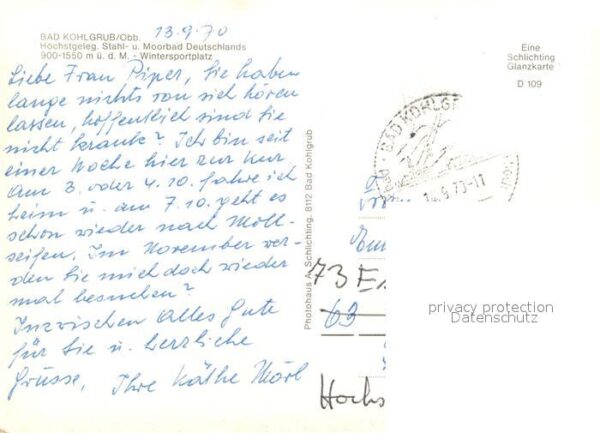 13.9.70
BAD KOHLGRUB/Obb.
Höchstgeleg. Stahl- u. Moorbad Deutschlands
900-1550 m ü. d. M. - Wintersportplatz
Liebe Frau Piper, Sie haben
lange nichts von sich hören
lassen, hoffentlich sind Sie
nicht krank? Ich bin seit
einer Woche hier zur Kur.
Am 3. oder 4.10. fahre ich
heim u. am 7.10. geht es
schon wieder nach Moll-
seifen. Im November wer-
den Sie mich doch wieder
mal besuchen?
Inzwischen Alles Gute
für Sie u. herzliche
Grüsse, Ihre Käthe Mörl
Photohaus A. Schlichting, 8112 Bad Kohlgrub
Eine
Schlichting
Glanzkarte
D 109
BAD KOHLGR
.9.70-11
73 E
63
Hochs
privacy protection
Datenschutz